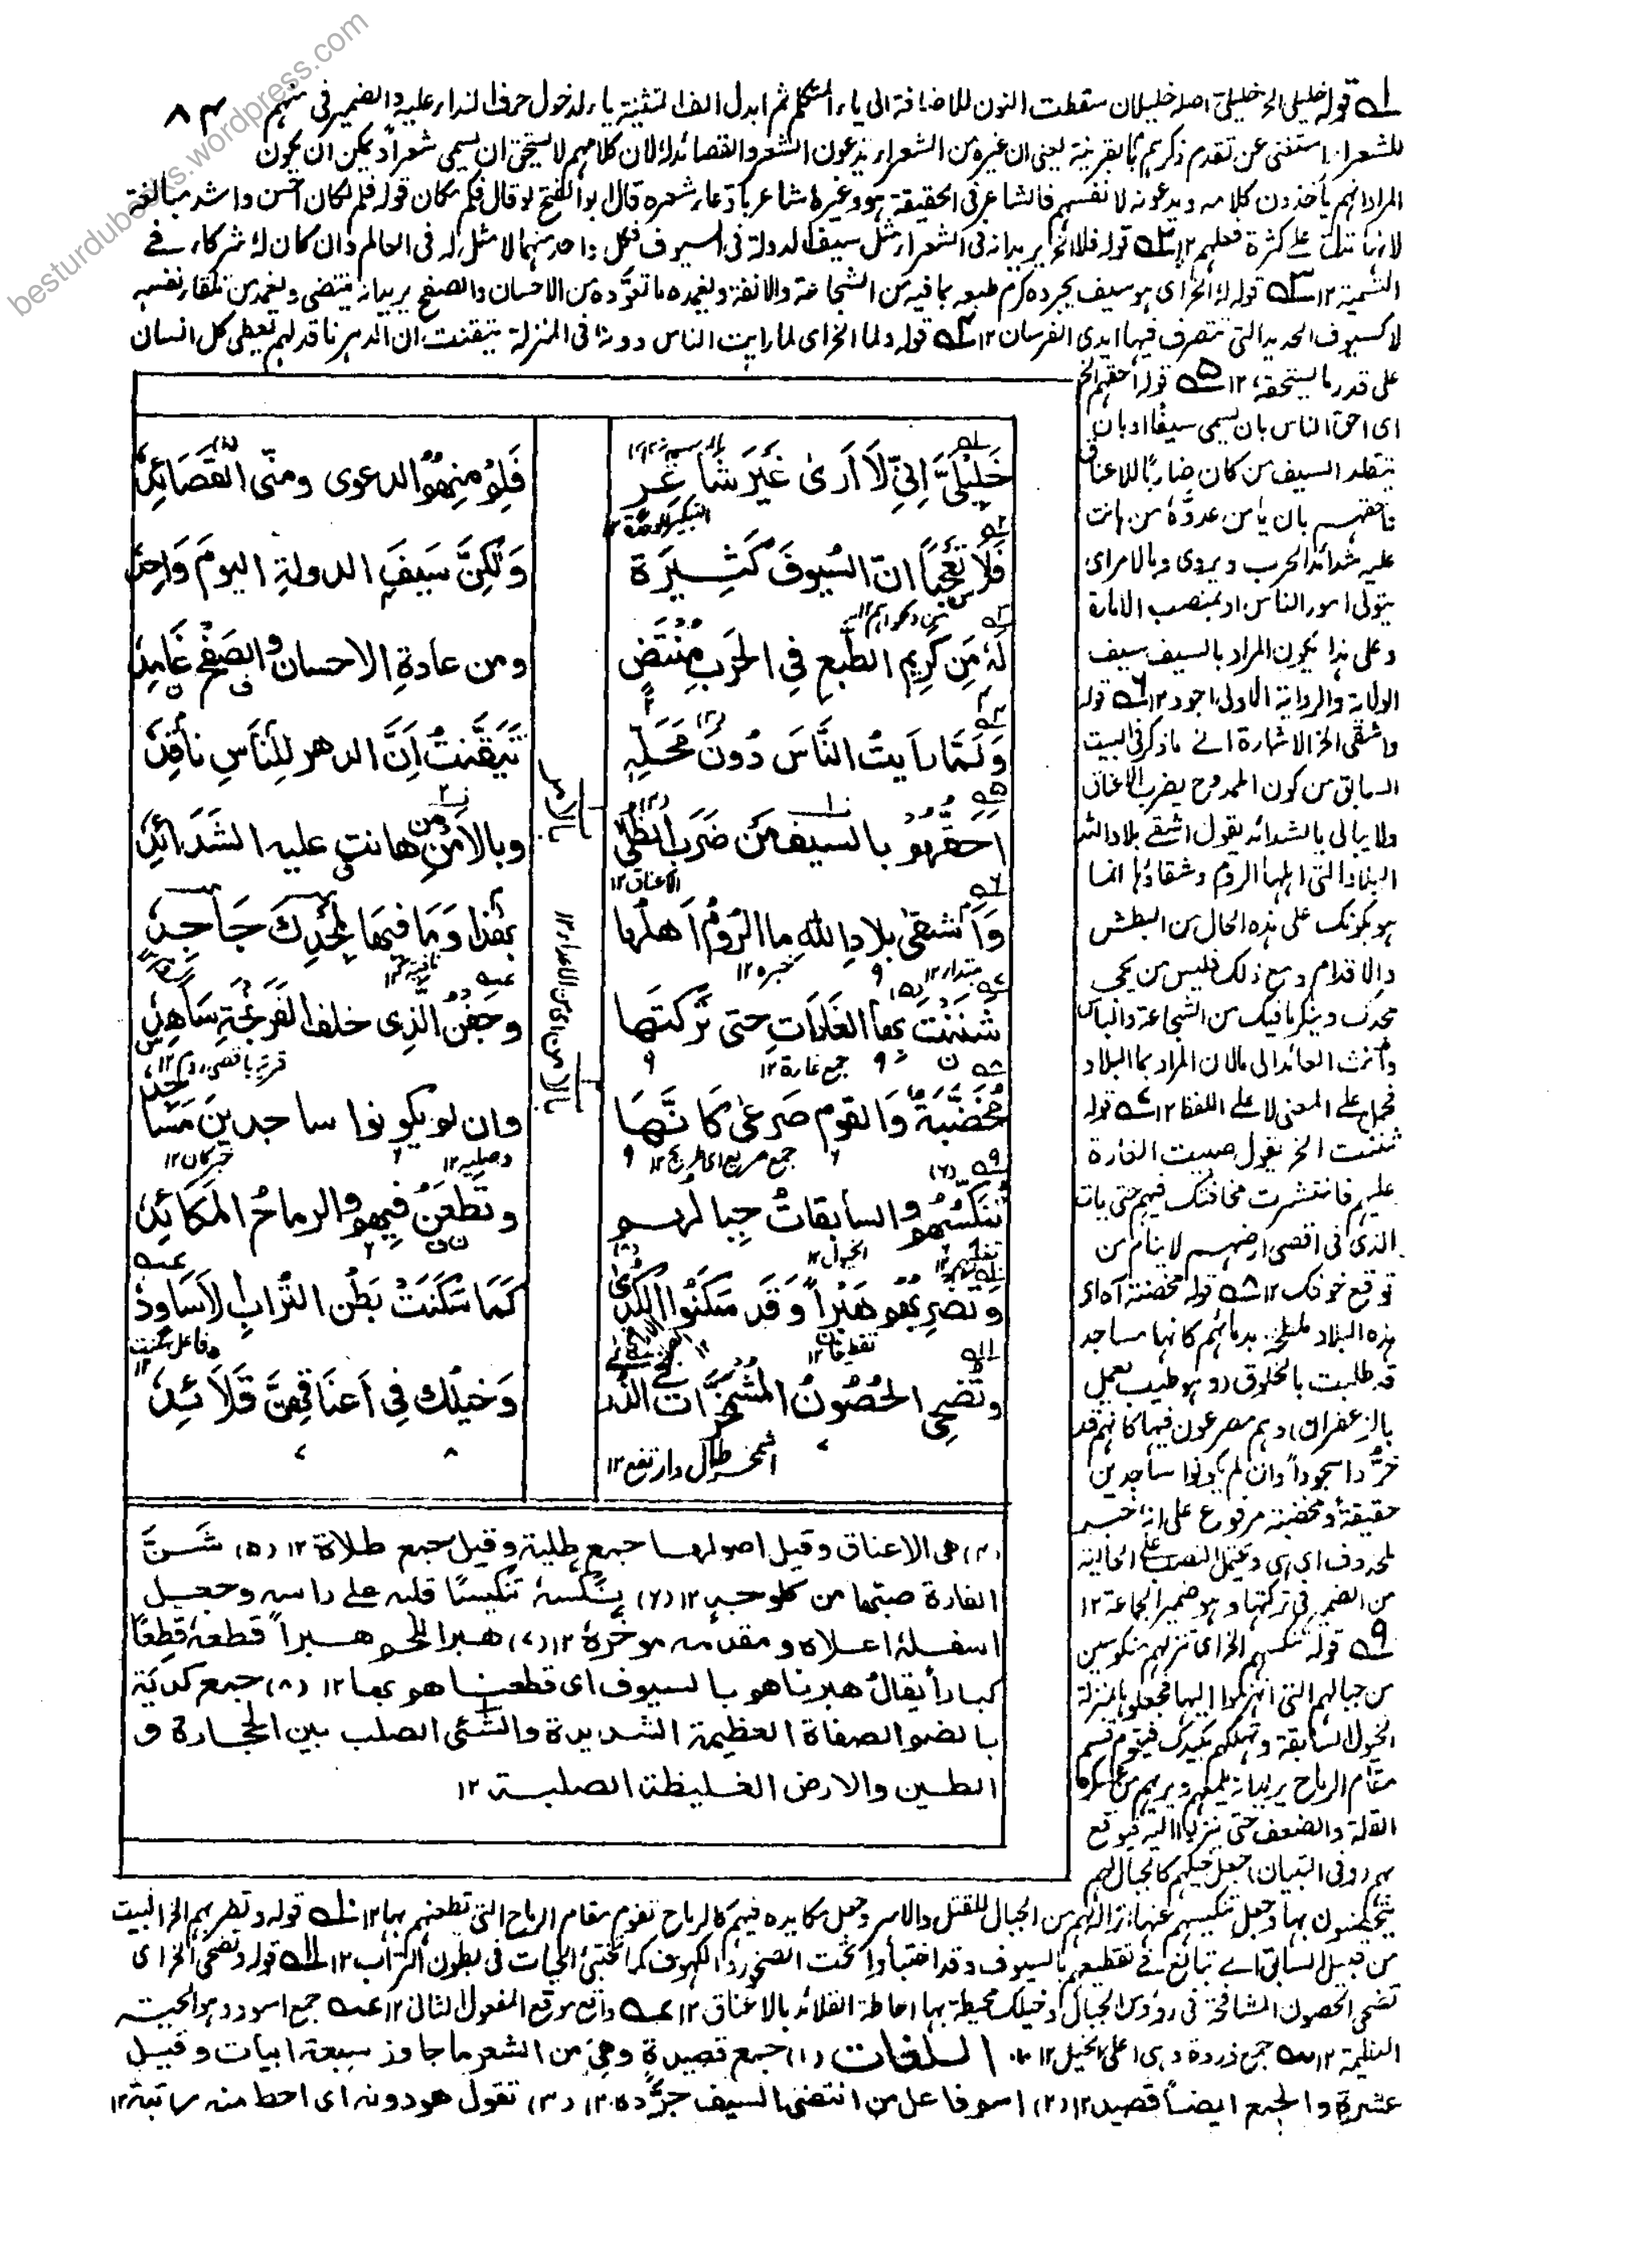 besturdubooks.wordpress.com
٨٣
١ه قوله خليلى الخ خليلى اصله خليلان سقطت النون للاضافة الى ياء المتكلم ثم ابدل الف التثنية ياء لدخول حرف النداء عليه والضمير فى منهم
للشعراء استغنى عن تقدم ذكرهم بالقرينة يعنى ان غيره من الشعراء يدعون الشعر والقصائد له لان كلامهم لا يستحق ان يسمى شعرا ويمكن ان يكون
المراد انهم يأخذون كلامه ويدعونه لانفسهم فالشاعر فى الحقيقة هو وغيره شاعر بادعاء شعره قال ابو الفتح لو قال فكم مكان قوله فلم لكان احسن واشد مبالغة
لانها تدل على كثرة فعلهم ١٢ ٢ه قوله فلا الخ يريد انه فى الشعراء مثل سيف الدولة فى السيوف فكل واحد منهما لا مثل له فى العالم وان كان له شركاء فى
التسمية ١٢ ٣ه قوله له الخ اى هو سيف يجرده كرم طبعه بما فيه من الشجاعة والانفة ويغمده ما تعوده من الاحسان والصفح يريد انه ينتضى ويغمد من تلقاء نفسه
لا كسيوف الحديد التى تتصرف فيها ايدى الفرسان ١٢ ٤ه قوله ولما الخ اى لما رايت الناس دونه فى المنزلة تيقنت ان الدهر ناقد لهم يعطى كل انسان
على قدر ما يستحقه ١٢ ٥ه قوله احقهم الخ
اى احق الناس بان يسمى سيفا او بان
يتقلد السيف من كان ضاربا للاعناق
واحقهم بان يأمن عدوه من هانت
عليه شدائد الحرب ويروى وبالامر اى
يتولى امور الناس او بمنصب الامارة
وعلى هذا يكون المراد بالسيف سيف
الولاية والرواية الاولى اجود ١٢ ٦ه قوله
واشقى الخ الاشارة الى ما ذكر فى البيت
السابق من كون الممدوح يضرب الاعناق
ولا يبالى بالشدائد يقول اشقى بلاد الله
البلاد التى اهلها الروم وشقاؤها انما
هو بكونك على هذه الحال من البطش
والاقدام ومع ذلك فليس من يجحد
مجدك وينكر ما فيك من الشجاعة والباس
وانث العائد الى ما لان المراد بما البلاد
فحمل على المعنى لا على اللفظ ١٢ ٧ه قوله
شننت الخ يقول صببت الغارة
عليهم فانتشرت مخافتك فيهم حتى بات
الذى فى اقصى ارضهم لا ينام من
توقع خوفك ١٢ ٨ه قوله مخضبة اه اى
هذه البلاد ملطخة بدمائهم كانها مساجد
قد طليت بالخلوق (وهو طيب يعمل
بالزعفران) وهم مصرعون فيها كانهم قد
خروا سجودا وان لم يكونوا ساجدين
حقيقة ومخضبة مرفوع على انه خبر
لمحذوف اى هى ويحتمل النصب على الحالية
من الضمير فى تركتها وهو ضمير الجماعة ١٢
٩ه قوله تنكسهم الخ اى تنزلهم منكوسين
من جبالهم التى انهزموا اليها فجعلوها بمنزلة
الخيول السابقة وتهلكهم بكيدك فيقوم فيهم
مقام الرماح يريد انه يلهمهم ويريهم من عسكره
القلة والضعف حتى ينزلوا اليه فيوقع
بهم (وفى التبيان) جعل خيلهم كالجبال لهم
يتحصنون بها وجعل تنكيسهم عنها انزالهم من الجبال للقتل والاسر وجعل مكايده فيهم كالرماح تقوم مقام الرماح التى تطعنهم بها ١٢ ١٠ه قوله وتضربهم الخ البيت
من قبيل السابق اى تبالغ فى تقطيعهم بالسيوف وقد اختبأوا تحت الصخور والكهوف كما تختبئ الحيات فى بطون التراب ١٢ ١١ه قوله وتضحى الخ اى
تضحى الحصون الشامخة فى رؤوس الجبال وخيلك محيطة بها احاطة القلائد بالاعناق ١٢ عه واقع موقع المفعول الثانى ١٢ عه جمع اسود وهو الحية
العظيمة ١٢ سه جمع ذروة وهى اعلى الجبل ١٢ اللغات (١) جمع قصيدة وهى من الشعر ما جاوز سبعة ابيات وقيل
عشرة والجمع ايضا قصيد ١٢ (٢) اسم فاعل من انتضى السيف جرّده ١٢ (٣) تقول هو دونه اى احط منه رتبة ١٢
خَلِيْلَىَّ اِنِّى لَا اَرَىٰ غَيْرَ شَاعِرٍ
فَلِمْ مِنْهُمُ الدعوى ومنّى القَصَائِدُ
فَلَا تَعْجَبَا انّ السُيوفَ كَثِيْرَة
وَلٰكِنَّ سَيفَ الدولةِ اليومَ وَاحِدُ
لَهٗ مِنْ كَرِيمِ الطَّبْعِ فِى الحَرْبِ مُنْتَضٍ
ومن عادةِ الاحسان والصَفْحِ غَامِدُ
وَلَمَّا رَاَيتُ النَّاسَ دُونَ مَحَلِّهٖ
تَيَقَّنتُ اَنَّ الدهر لِلنَّاسِ نَاقِدُ
اَحَقُّهُمُ بالسيف مَنْ ضَرَبَ الطُلٰى
وبالاَمْنِ من هانت عليه الشَدَائِدُ
وَاَشقىٰ بلادِ اللهِ ما الرُومُ اَهلُها
بِهٰذا وَمَا فيها لِمَجْدِكَ جَاحِدُ
شَنَنْتَ بها الغَارَاتِ حتى تَركتَها
وجَفْنُ الَّذِى خلف الفَرَنْجَةِ سَاهِدُ
مُخَضَّبَةً وَالقوم صَرْعىٰ كَاَنَّهَا
وان لم يكونوا ساجدينَ مَسَاجِدُ
تُنَكِّسُهُمْ والسابقاتُ جِبالُهم
وتَطعَنُ فيهِم والرماحُ المَكَائِدُ
وتَضرِبُهُم هَبْراً وَقَد سَكَنُوا الكُدىٰ
كَمَا سَكَنَتْ بَطْنَ التُّرابِ الاَسَاوِدُ
وتُضْحِى الحُصُونُ المُشْمَخِرَّاتُ فى الذُرىٰ
وَخَيْلُك فِى اَعنَاقِهِنَّ قَلَائِدُ
بالامر
بالامن اى من الاعداء ١٢
الاعناق ١٢
مبتدا ١٢
خبره ١٢
نافية ١٢
جمع غارة ١٢
قرية باقصى روم ١٢
جمع صريع اى طريح ١٢
وصلية ١٢
خبر كان ١٢
الخيول ١٢
فاعل سكنت ١٢
اشمخر طال وارتفع ١٢
(٤) هى الاعناق وقيل اصولها جمع طلية وقيل جمع طلاة ١٢ (٥) شَنَّ
الغارة صبّها من كل وجه ١٢ (٦) ينكّسه تنكيسًا قلبه على راسه وجعل
اسفله اعلاه ومقدّمه موخّره ١٢ (٧) هبر اللحم هبراً قطعه قِطعًا
كبارا يقال هبرناهم بالسيوف اى قطعناهم بها ١٢ (٨) جمع كدية
بالضم الصفاة العظيمة الشديدة والشئى الصلب بين الحجارة و
الطين والارض الغليظة الصلبة ١٢